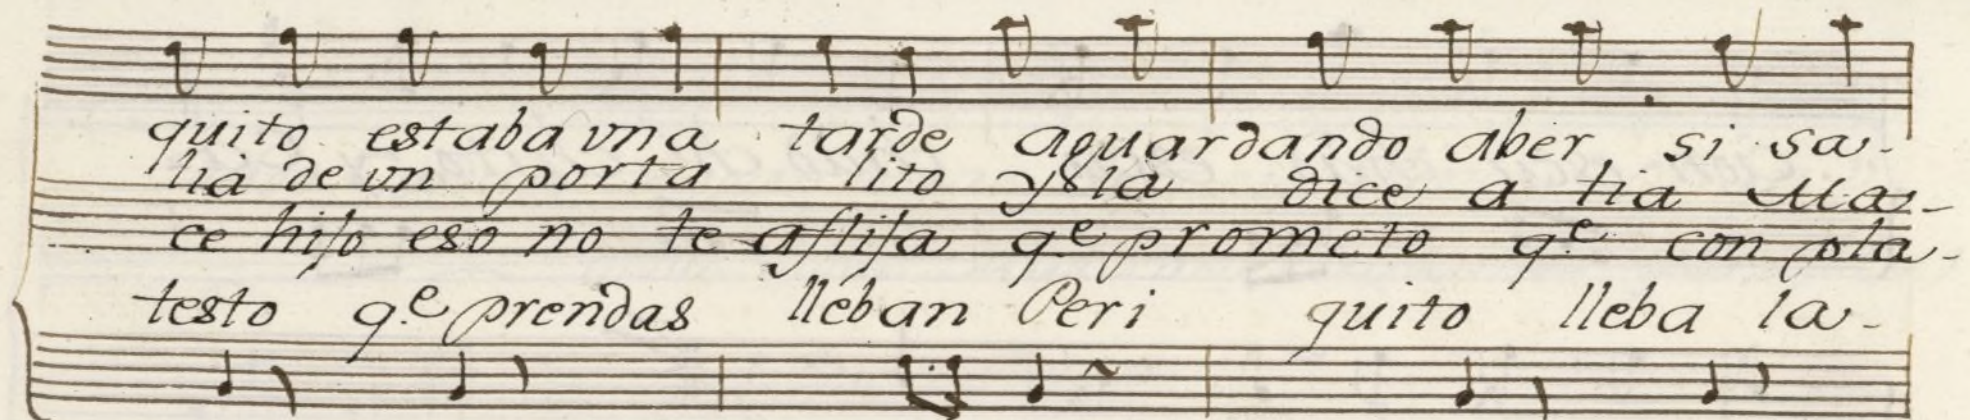 quito estaba vna tarde aguardando aber si sa-
lia de vn porta lito ysla dice a tia Ma-
ce hijo eso no te aflija q.e prometo q.e con pla-
testo q.e prendas lleban Peri quito lleba la-